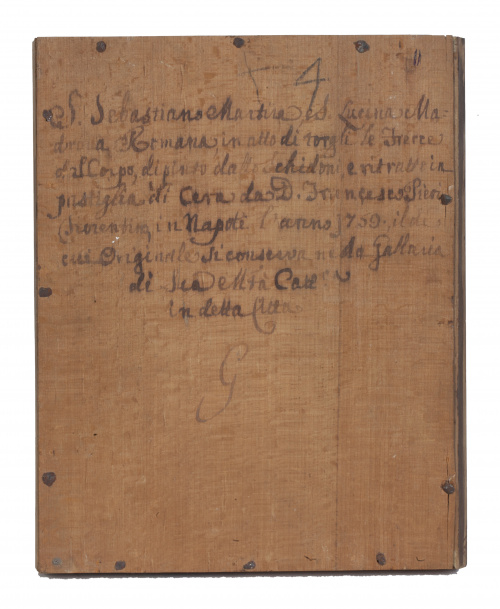 4
S. Sebastiano Martire e S. Lucina Ma=
trona Romana in atto di torgli le Frecce
dal Corpo, dipinto dallo Schidoni, e ritratto in
pastiglia di Cera da D. Francesco Pieri
Fiorentino, in Napoli l'anno 1759. il di
cui Originale si conserva nella Gallaria
di Sua
in detta Città
G